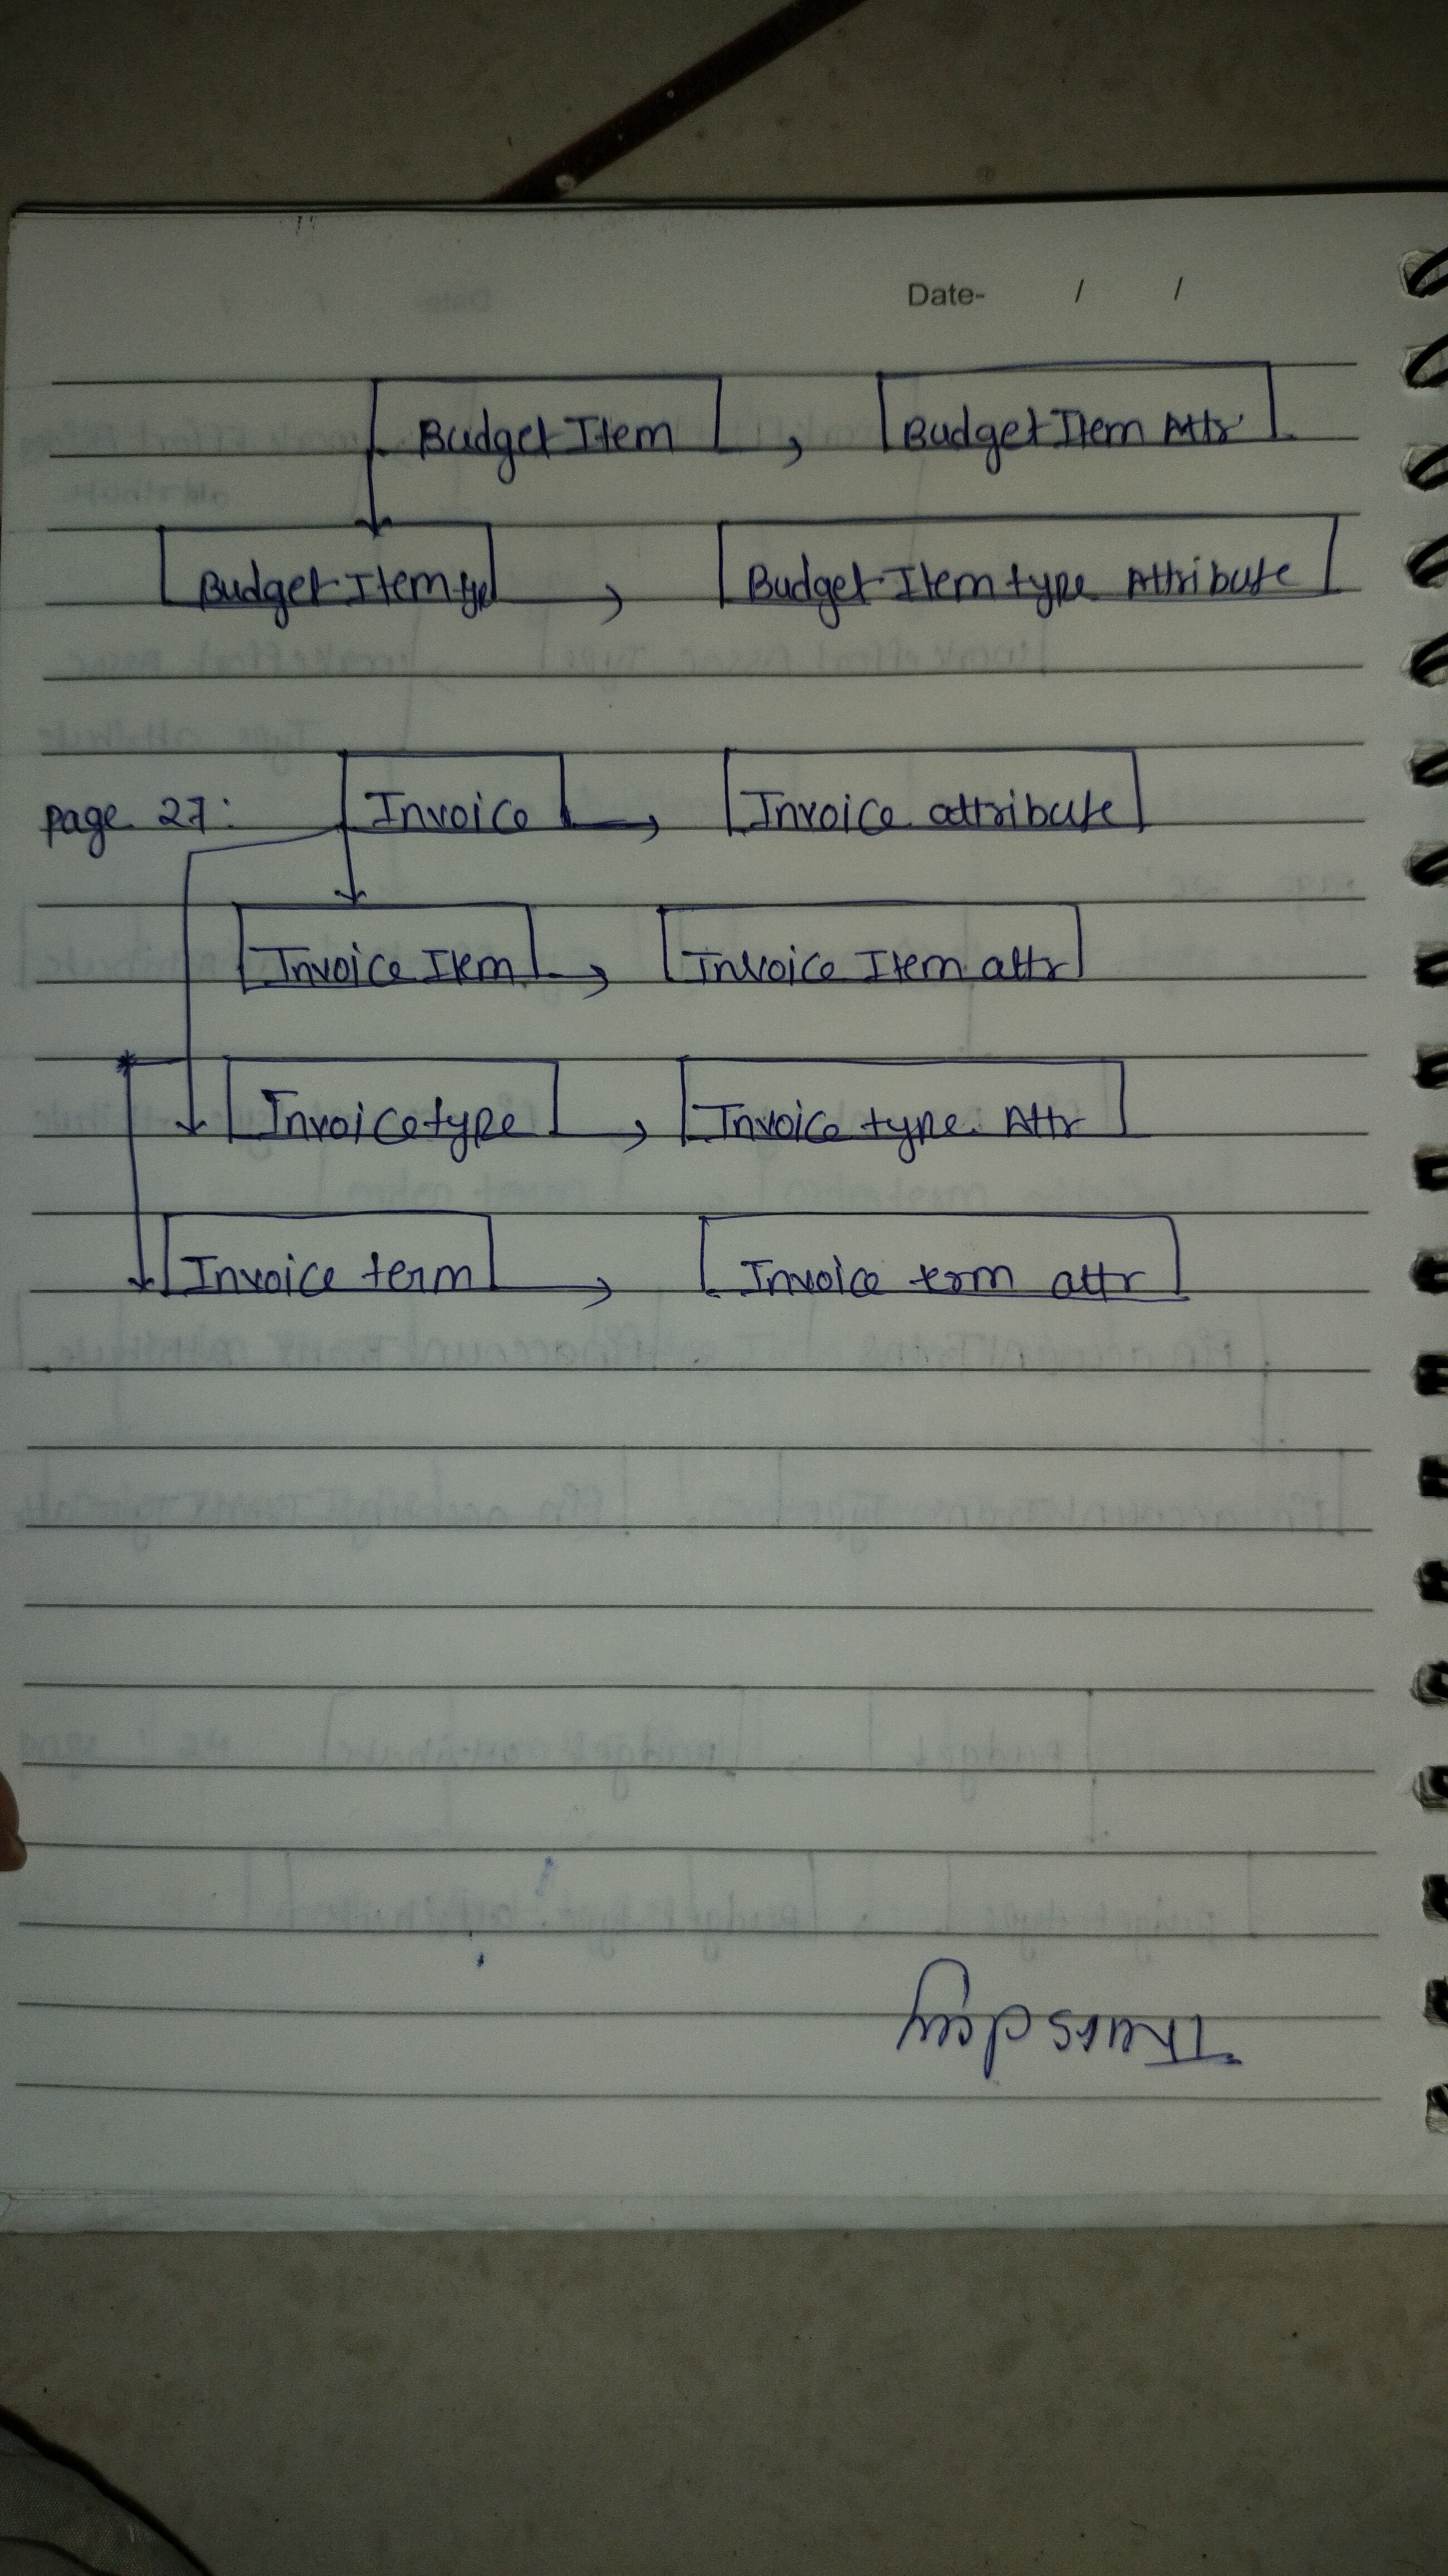 Date- / /
Budget Item Budget Item Attr
Budget Item typ Budget Item type Attribute
page 27: Invoice Invoice attribute
Invoice Item Invoice Item attr
Invoice type Invoice type Attr
Invoice term Invoice term attr
Thursday